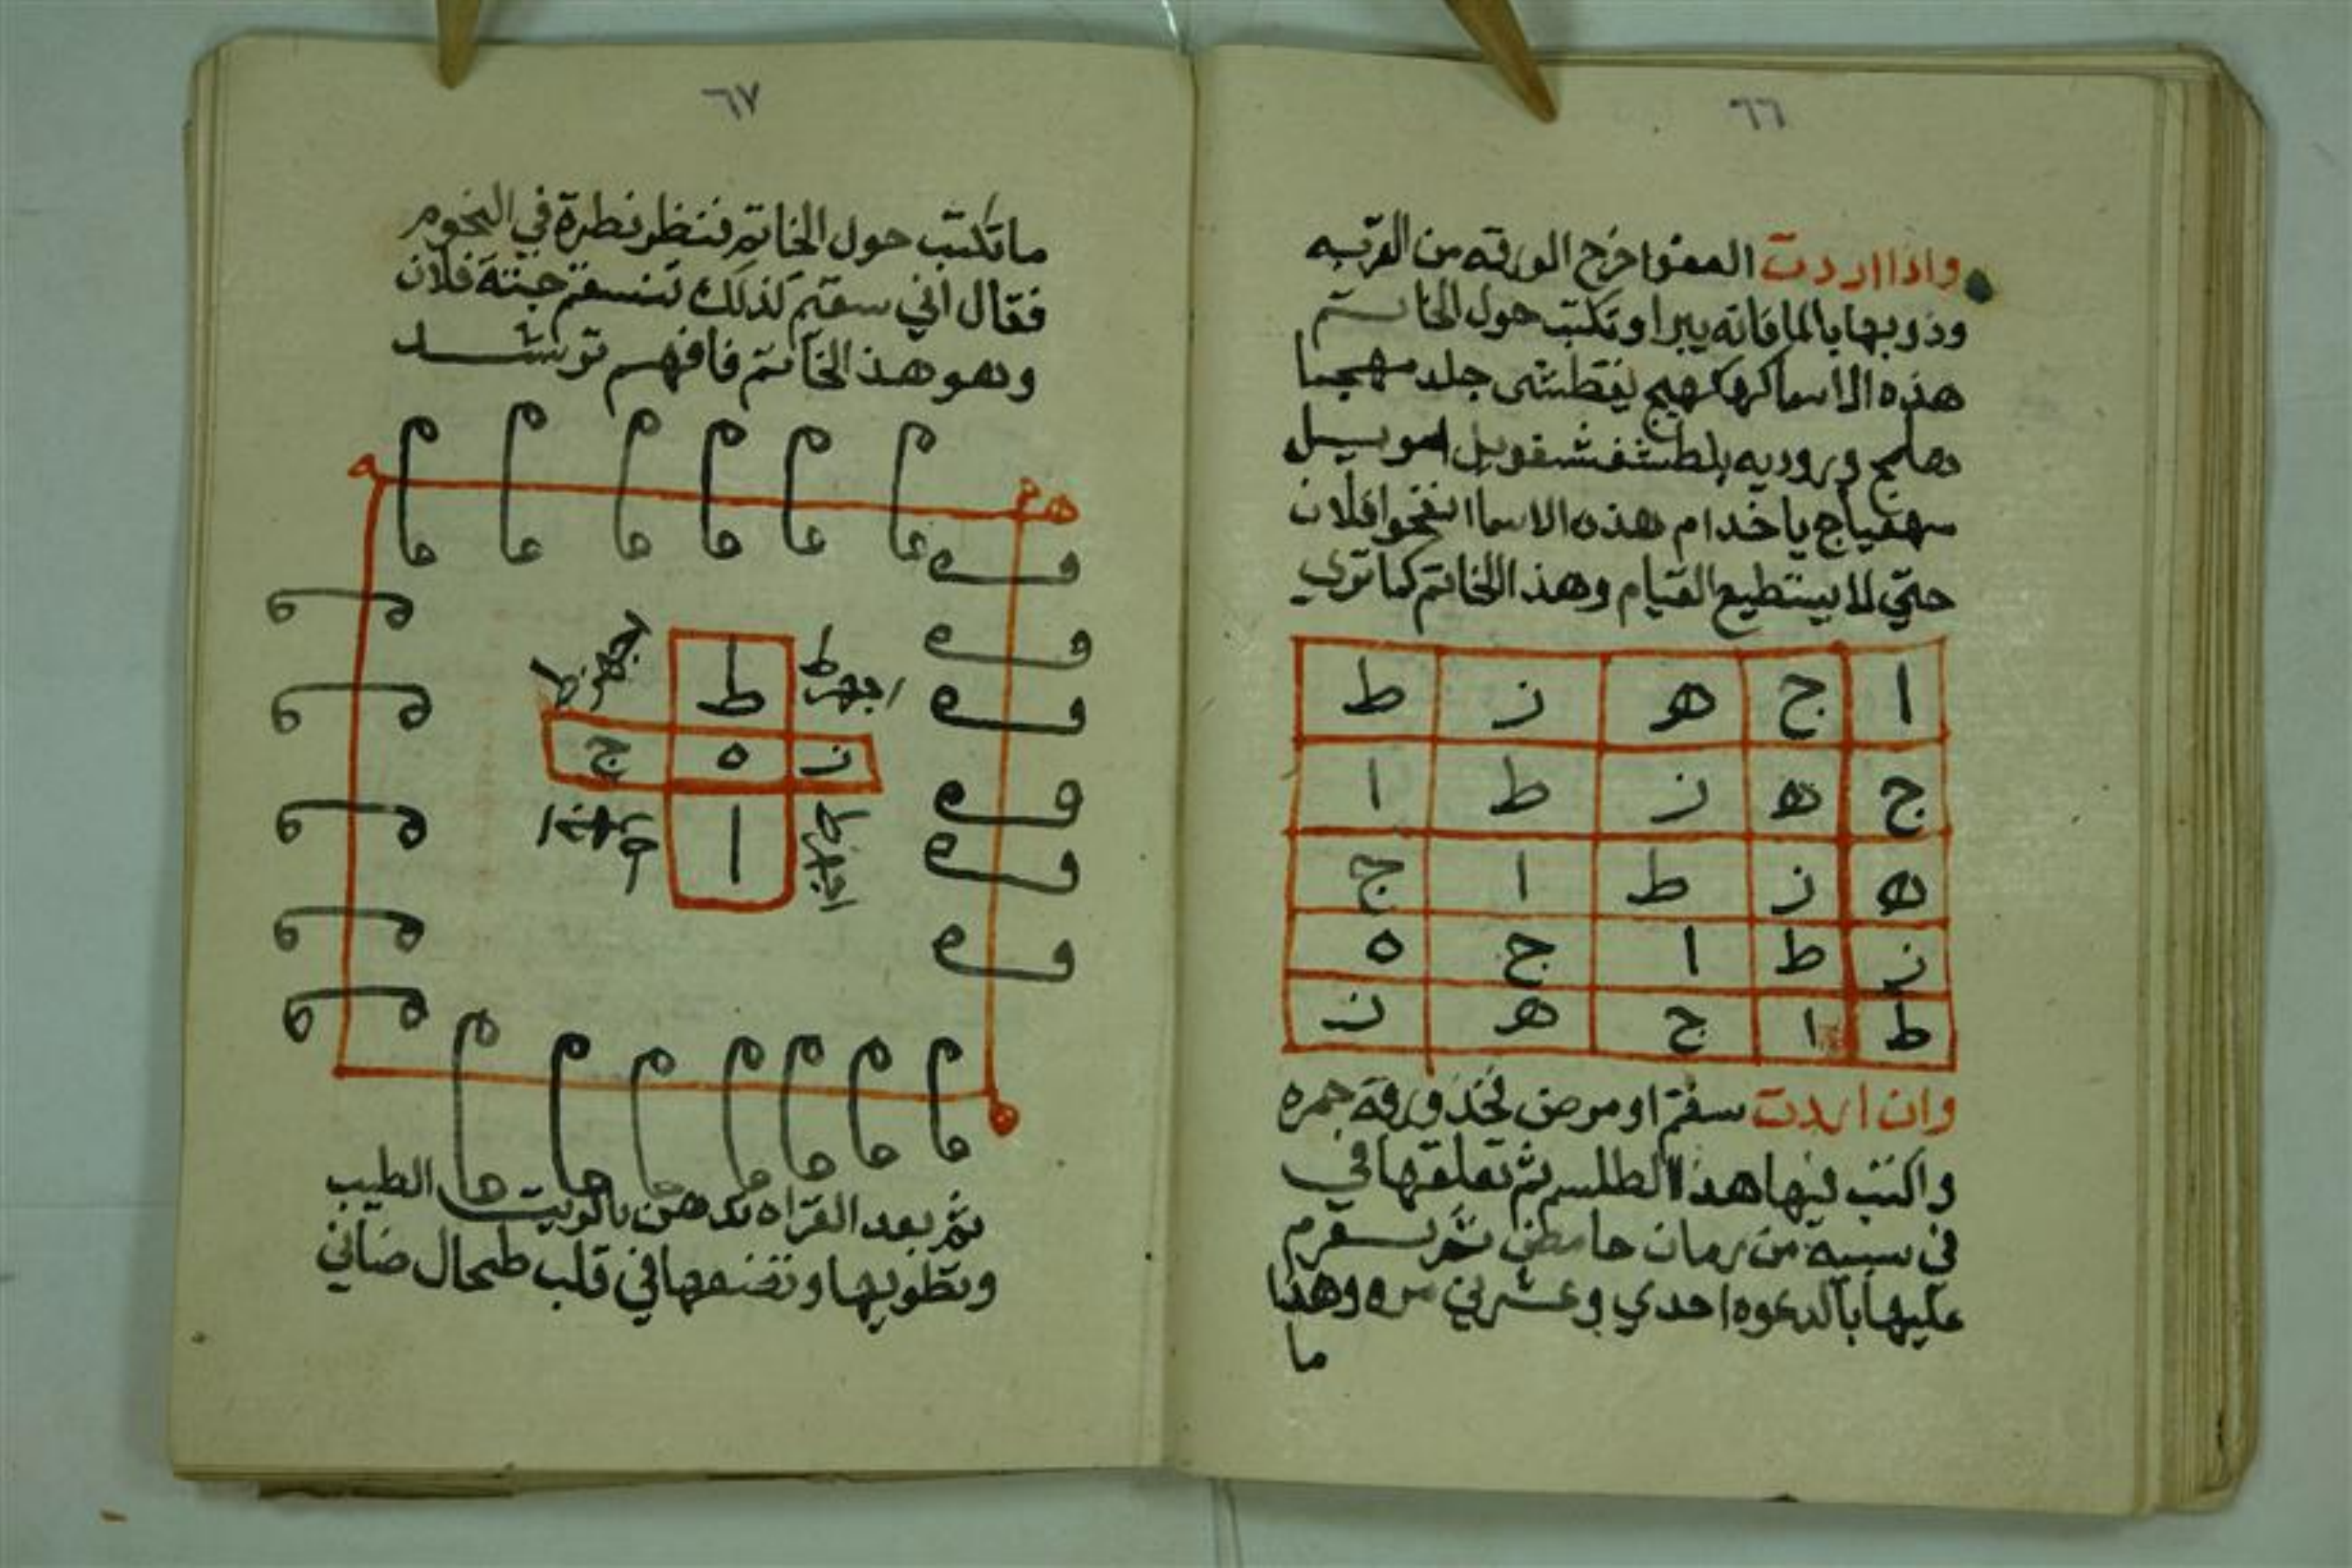 ٦٦
واذا اردت العفوا خرج الورقه من القربه
وذوبها بالما فانه يبرا وتكتب حول الخاتم
هذه الاسما كهكهيج يغطشى جلد مهجما
هلمج وروديه بلطشغشغويل امويل
سهفياج يا خدام هذه الاسما انفخوا فلان
حتي لا يستطيع القيام وهذا الخاتم كما تري
ا ج هو ز ط
ج ه ز ط ا
ه ز ط ا ج
ز ط ا ج ه
ط ا ج هو ز
وان اردت سقم او مرض فخذ ورقه حمره
واكتب فيها هذا الطلسم ثم تعلقها في
في سيبه من رمان حامض ثم تعزم
عليها بالدعوه احدي وعشرين مره وهذا
ما
٦٧
ما تكتب حول الخاتم فنظر نظرة في النجوم
فقال اني سقيم كذلك تسقم جثة فلان
وهو هذ الخاتم فافهم ترشد
ط
ز ه ج
ا
ثم بعد القراه تدهن بالزيت الطيب
وتطويها وتضعها في قلب طحال ضاني